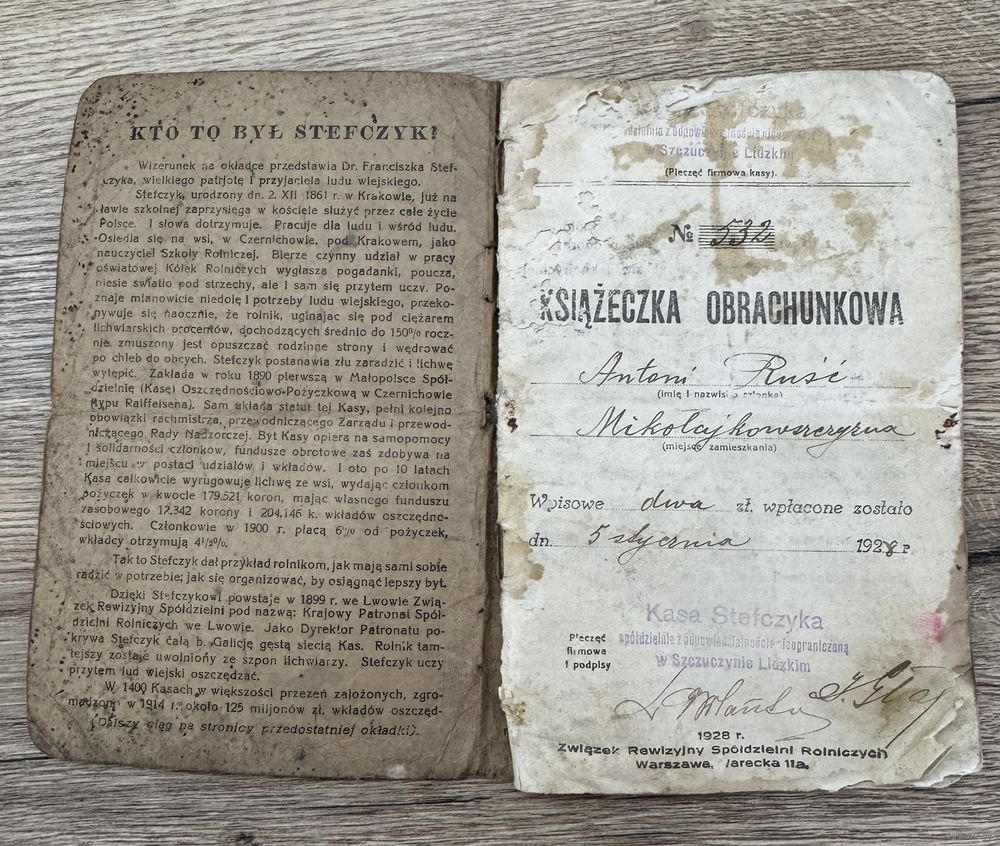 KTO TO BYŁ STEFCZYK?
Wizerunek na okładce przedstawia Dr. Franciszka Stef-
czyka, wielkiego patrjotę i przyjaciela ludu wiejskiego.
Stefczyk, urodzony dn. 2. XII 1861 r. w Krakowie, już na
ławie szkolnej zaprzysięga w kościele służyć przez całe życie
Polsce. I słowa dotrzymuje. Pracuje dla ludu i wśród ludu.
Osiedla się na wsi, w Czernichowie, pod Krakowem, jako
nauczyciel Szkoły Rolniczej. Bierze czynny udział w pracy
oświatowej Kółek Rolniczych wygłasza pogadanki, poucza,
niesie światło pod strzechy, ale i sam się przytem uczy. Po-
znaje mianowicie niedolę i potrzeby ludu wiejskiego, przeko-
nywuje się naocznie, że rolnik, uginając się pod ciężarem
lichwiarskich procentów, dochodzących średnio do 150% rocz-
nie, zmuszony jest opuszczać rodzinne strony i wędrować
po chleb do obcych. Stefczyk postanawia złu zaradzić i lichwę
wytępić. Zakłada w roku 1890 pierwszą w Małopolsce Spół-
dzielnię (Kasę) Oszczędnościowo-Pożyczkową w Czernichowie
(typu Raiffeisena). Sam układa statut tej Kasy, pełni kolejno
obowiązki rachmistrza, przewodniczącego Zarządu i przewod-
niczącego Rady Nadzorczej. Byt Kasy opiera na samopomocy
i solidarności członków, fundusze obrotowe zaś zdobywa na
miejscu w postaci udziałów i wkładów. I oto po 10 latach
Kasa całkowicie wyrugowuje lichwę ze wsi, wydając członkom
pożyczek w kwocie 179.521 koron, mając własnego funduszu
zasobowego 12.342 korony i 204.146 k. wkładów oszczędno-
ściowych. Członkowie w 1900 r. płacą 6% od pożyczek,
wkładcy otrzymują 4½%.
Tak to Stefczyk dał przykład rolnikom, jak mają sami sobie
radzić w potrzebie; jak się organizować, by osiągnąć lepszy byt.
Dzięki Stefczykowi powstaje w 1899 r. we Lwowie Zwią-
zek Rewizyjny Spółdzielni pod nazwą: Krajowy Patronat Spół-
dzielni Rolniczych we Lwowie. Jako Dyrektor Patronatu po-
krywa Stefczyk całą b. Galicję gęstą siecią Kas. Rolnik tam-
tejszy zostaje uwolniony ze szpon lichwiarzy. Stefczyk uczy
przytem lud wiejski oszczędzać.
W 1400 Kasach w większości przezeń założonych, zgro-
madzono w 1914 r. około 125 miljonów zł. wkładów oszczęd-
(Dalszy ciąg na stronicy przedostatniej okładki).
w Szczuczynie Lidzkim
(Pieczęć firmowa kasy).
№ 532
KSIĄŻECZKA OBRACHUNKOWA
Antoni Ruść
(imię i nazwisko członka)
Mikołajkowszczyzna
(miejsce zamieszkania)
Wpisowe dwa zł. wpłacone zostało
dn. 5 stycznia 1928 r.
Kasa Stefczyka
spółdzielnia z odpowiedzialnością nieograniczoną
w Szczuczynie Lidzkim
Pieczęć
firmowa
i podpisy
1928 r.
Związek Rewizyjny Spółdzielni Rolniczych
Warszawa, Warecka 11a.